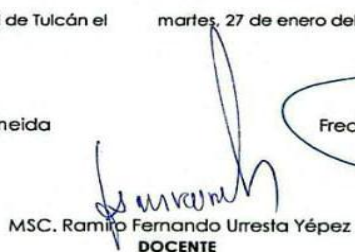 de Tulcán el martes, 27 de enero del
neida Fred
MSC. Ramiro Fernando Urresta Yépez
DOCENTE